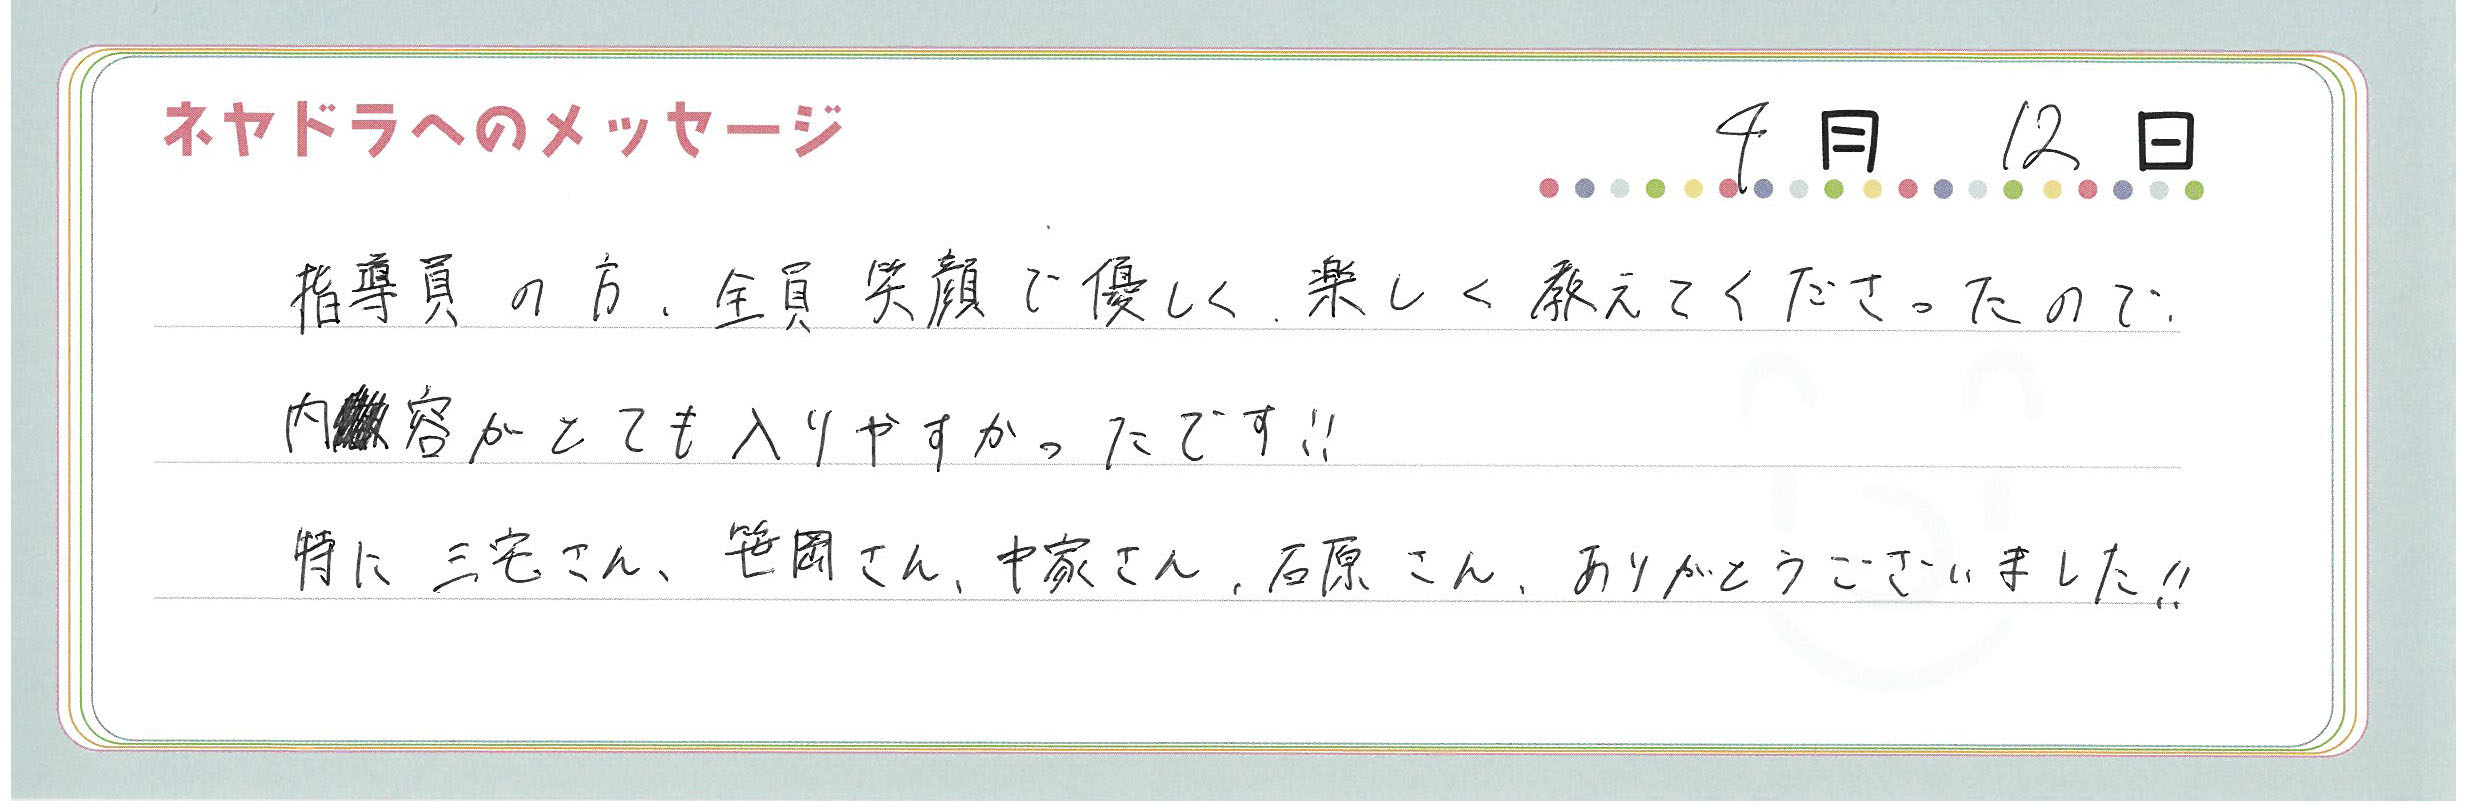 ネヤドラへのメッセージ
4月 12日
指導員の方、全員笑顔で優しく、楽しく教えてくださったので、
内容がとても入りやすかったです!!
特に三宅さん、笹岡さん、中家さん、石原さん、ありがとうございました!!